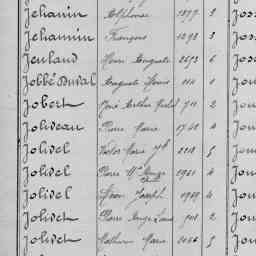 Jehanin Alphonse 1877 2 Joss
Jehannin François 1293 3 Joss
Jenland Henri Auguste 2573 6 Joss
Jobbé Duval Auguste Louis 114 1 Jou
Jobert René Arthur 711 2 Jou
Joliveau Pierre Marie 1748 4 Jou
Jolivel Victor Marie Jh 2218 5 Jou
Jolivel Pierre Mie Ange 1951 4 Jou
Jolivel Léon Joseph 1969 4 Jou
Jolivet Pierre Ange Louis 908 2 Jou
Jolivet Mathurin Marie 2066 5 Jou